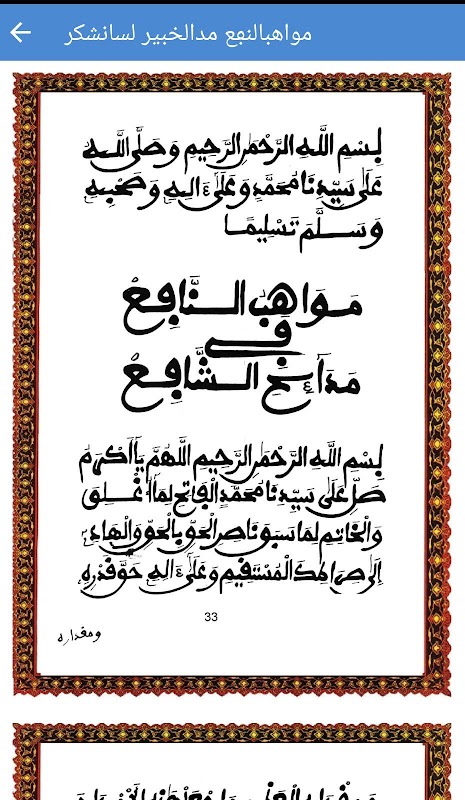 مواهبالنفع مدالخبير لسانشكر
بِسْمِ اللَّهِ الرَّحْمَٰنِ الرَّحِيمِ وَصَلَّى اللَّه
عَلَىٰ سَيِّدِنَا مُحَمَّدٍ وَعَلَىٰ ءَالِهِ وَصَحْبِهِ
وَسَلَّمَ تَسْلِيمًا
مَوَاهِبُ النَّافِعْ
فِي
مَدَآئِحِ الشَّافِعْ
بِسْمِ اللَّهِ الرَّحْمَٰنِ الرَّحِيمِ اللَّهُمَّ يَا أَكْرَمُ
صَلِّ عَلَى سَيِّدِنَا مُحَمَّدٍ الْفَاتِحِ لِمَا أُغْلِقَ
وَالْخَاتِمِ لِمَا سَبَقَ نَاصِرِ الْحَقِّ بِالْحَقِّ وَالْهَادِي
إِلَى صِرَاطِكَ الْمُسْتَقِيمِ وَعَلَىٰ ءَالِهِ حَقَّ قَدْرِهِ
33
ومقداره